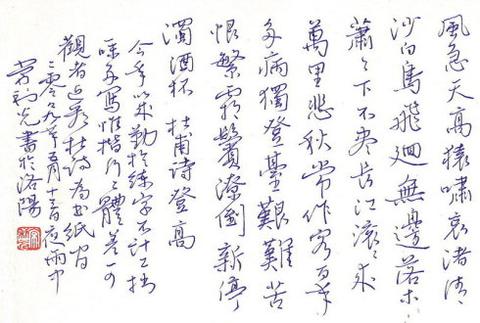 風急天高猿嘯哀渚清
沙白鳥飛迴無邊落木
蕭蕭下不盡長江滾滾來
萬里悲秋常作客百年
多病獨登臺艱難苦
恨繁霜鬢潦倒新停
濁酒杯 杜甫詩登高
今年以來勤於練字不計工拙
味多寫惟楷行二體差可
觀者近影杜詩為出紙皆
二零零九年五月十三日夜雨中
書於洛陽